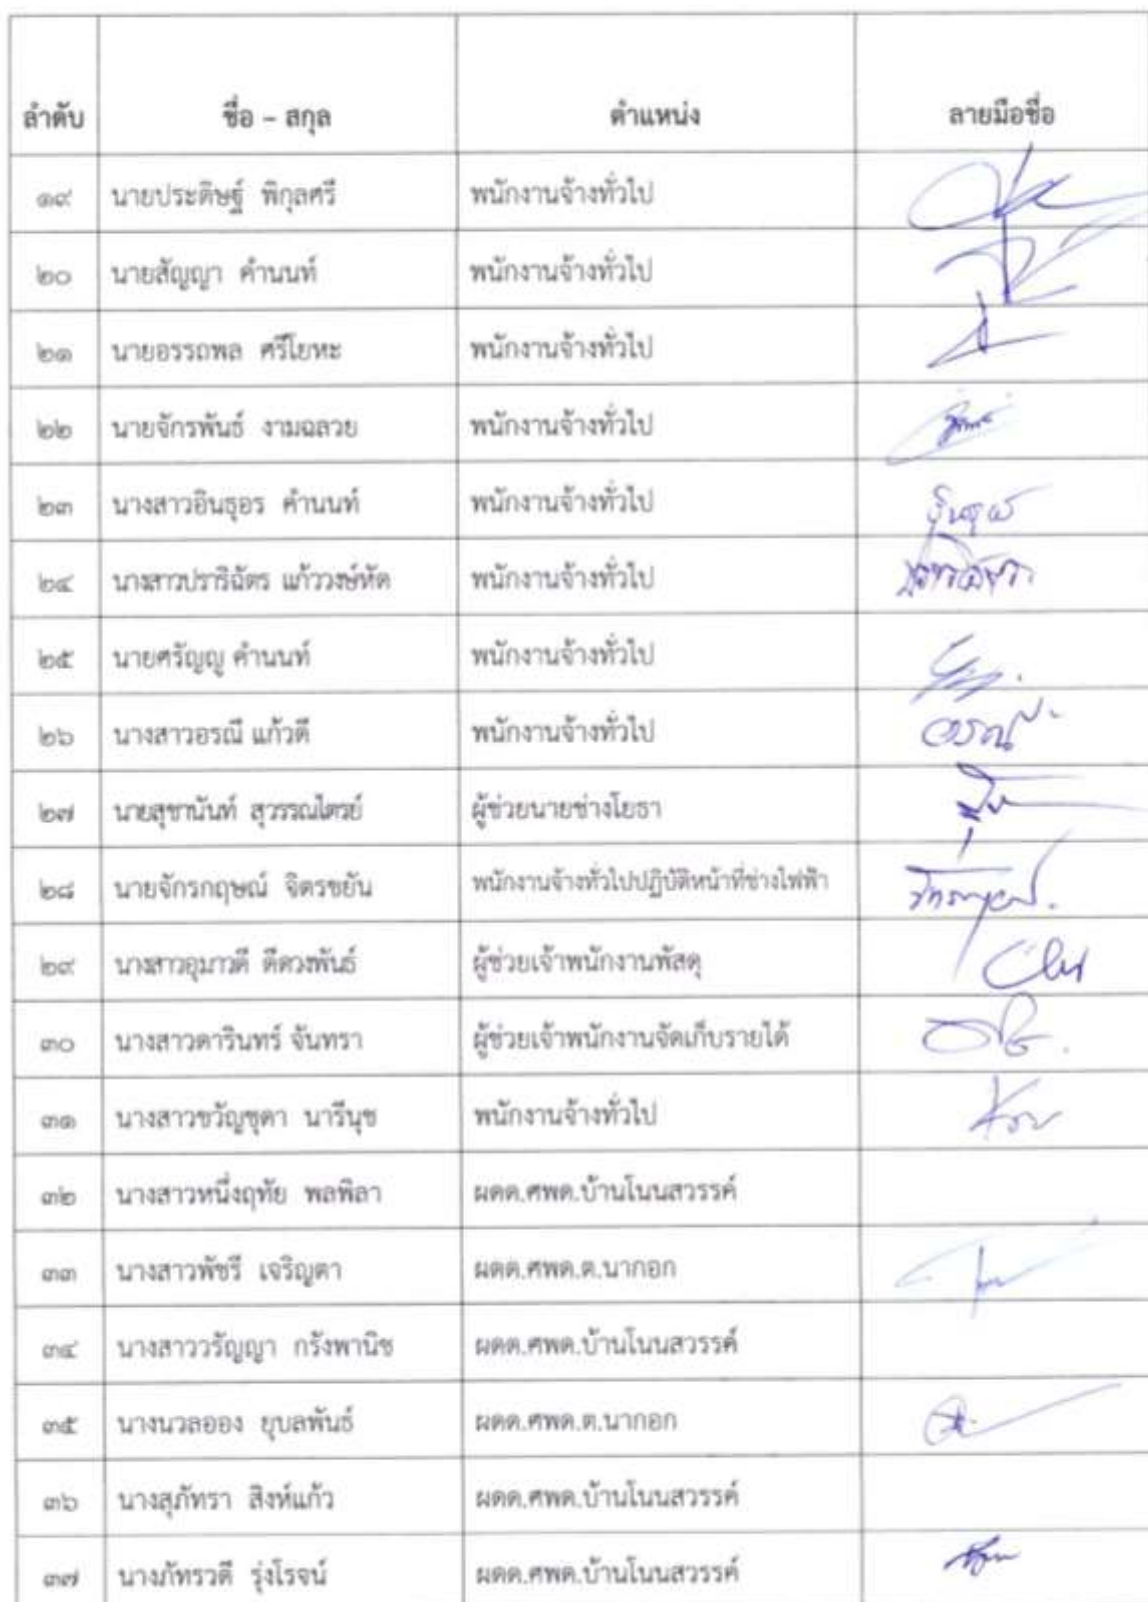 ลำดับ ชื่อ – สกุล ตำแหน่ง ลายมือชื่อ
๑๙ นายประดิษฐ์ พิกุลศรี พนักงานจ้างทั่วไป
๒๐ นายสัญญา คำนนท์ พนักงานจ้างทั่วไป
๒๑ นายอรรถพล ศรีโยหะ พนักงานจ้างทั่วไป
๒๒ นายจักรพันธ์ งามฉลวย พนักงานจ้างทั่วไป
๒๓ นางสาวอินธุอร คำนนท์ พนักงานจ้างทั่วไป
๒๔ นางสาวปราริฉัตร แก้ววงษ์หัด พนักงานจ้างทั่วไป
๒๕ นายศรัญญู คำนนท์ พนักงานจ้างทั่วไป
๒๖ นางสาวอรณี แก้วดี พนักงานจ้างทั่วไป อรณี
๒๗ นายสุชานันท์ สุวรรณไตรย์ ผู้ช่วยนายช่างโยธา
๒๘ นายจักรกฤษณ์ จิตรชยัน พนักงานจ้างทั่วไปปฏิบัติหน้าที่ช่างไฟฟ้า
๒๙ นางสาวอุมาวดี ดีดวงพันธ์ ผู้ช่วยเจ้าพนักงานพัสดุ
๓๐ นางสาวดารินทร์ จันทรา ผู้ช่วยเจ้าพนักงานจัดเก็บรายได้
๓๑ นางสาวขวัญชุดา นารีนุช พนักงานจ้างทั่วไป
๓๒ นางสาวหนึ่งฤทัย พลพิลา ผดด.ศพด.บ้านโนนสวรรค์
๓๓ นางสาวพัชรี เจริญตา ผดด.ศพด.ต.นากอก
๓๔ นางสาววรัญญา กรังพานิช ผดด.ศพด.บ้านโนนสวรรค์
๓๕ นางนวลออง ยุบลพันธ์ ผดด.ศพด.ต.นากอก
๓๖ นางสุภัทรา สิงห์แก้ว ผดด.ศพด.บ้านโนนสวรรค์
๓๗ นางภัทรวดี รุ่งโรจน์ ผดด.ศพด.บ้านโนนสวรรค์